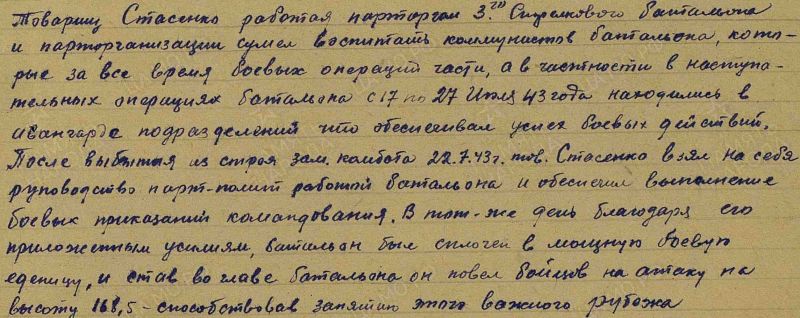 Товарищ Стасенко работая парторгом 3го Стрелкового батальона
и парторганизации сумел воспитать коммунистов батальона, кото-
рые за все время боевых операций части, а в частности в наступа-
тельных операциях батальона с 17 по 27 Июля 43 года находились в
авангарде подразделений что обеспечивал успех боевых действий.
После выбытия из строя зам. комбата 22.7.43 г. тов. Стасенко взял на себя
руководство парт-полит работой батальона и обеспечил выполнение
боевых приказаний командования. В тот-же день благодаря его
приложенным усилиям, батальон был сплочен в мощную боевую
еденицу, и став во главе батальона он повел бойцов на атаку на
высоту 168,5 - способствовав занятию этого важного рубежа